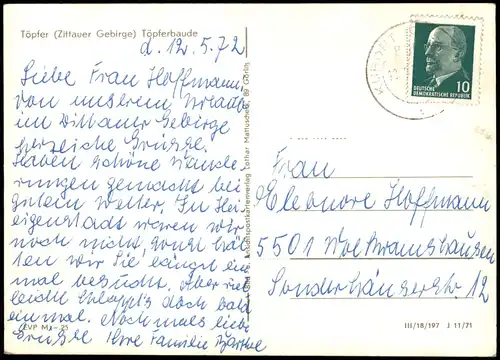 Töpfer (Zittauer Gebirge) Töpferbaude
d. 12. 5. 72
Liebe Frau Hoffmann,
von unserem Urlaub
im Zittauer Gebirge
herzliche Grüsse.
Haben schöne Wande-
rungen gemacht bei
gutem Wetter. In Hei
eigenstadt waren wir
noch nicht, sonst hät-
ten wir Sie längst ein
mal besucht. Aber viel
leicht klappt's doch bald
einmal. Nochmals liebe
Grüsse Ihre Familie
EVP M -,25
Ansichtspostkartenverlag Lothar Mattuschek, 89 Görlitz
DEUTSCHE
DEMOKRATISCHE REPUBLIK
10
Frau
Eleonore Hoffmann
5501 Wolkramshausen
Sondershäuserstr. 12
III/18/197 J 11/71